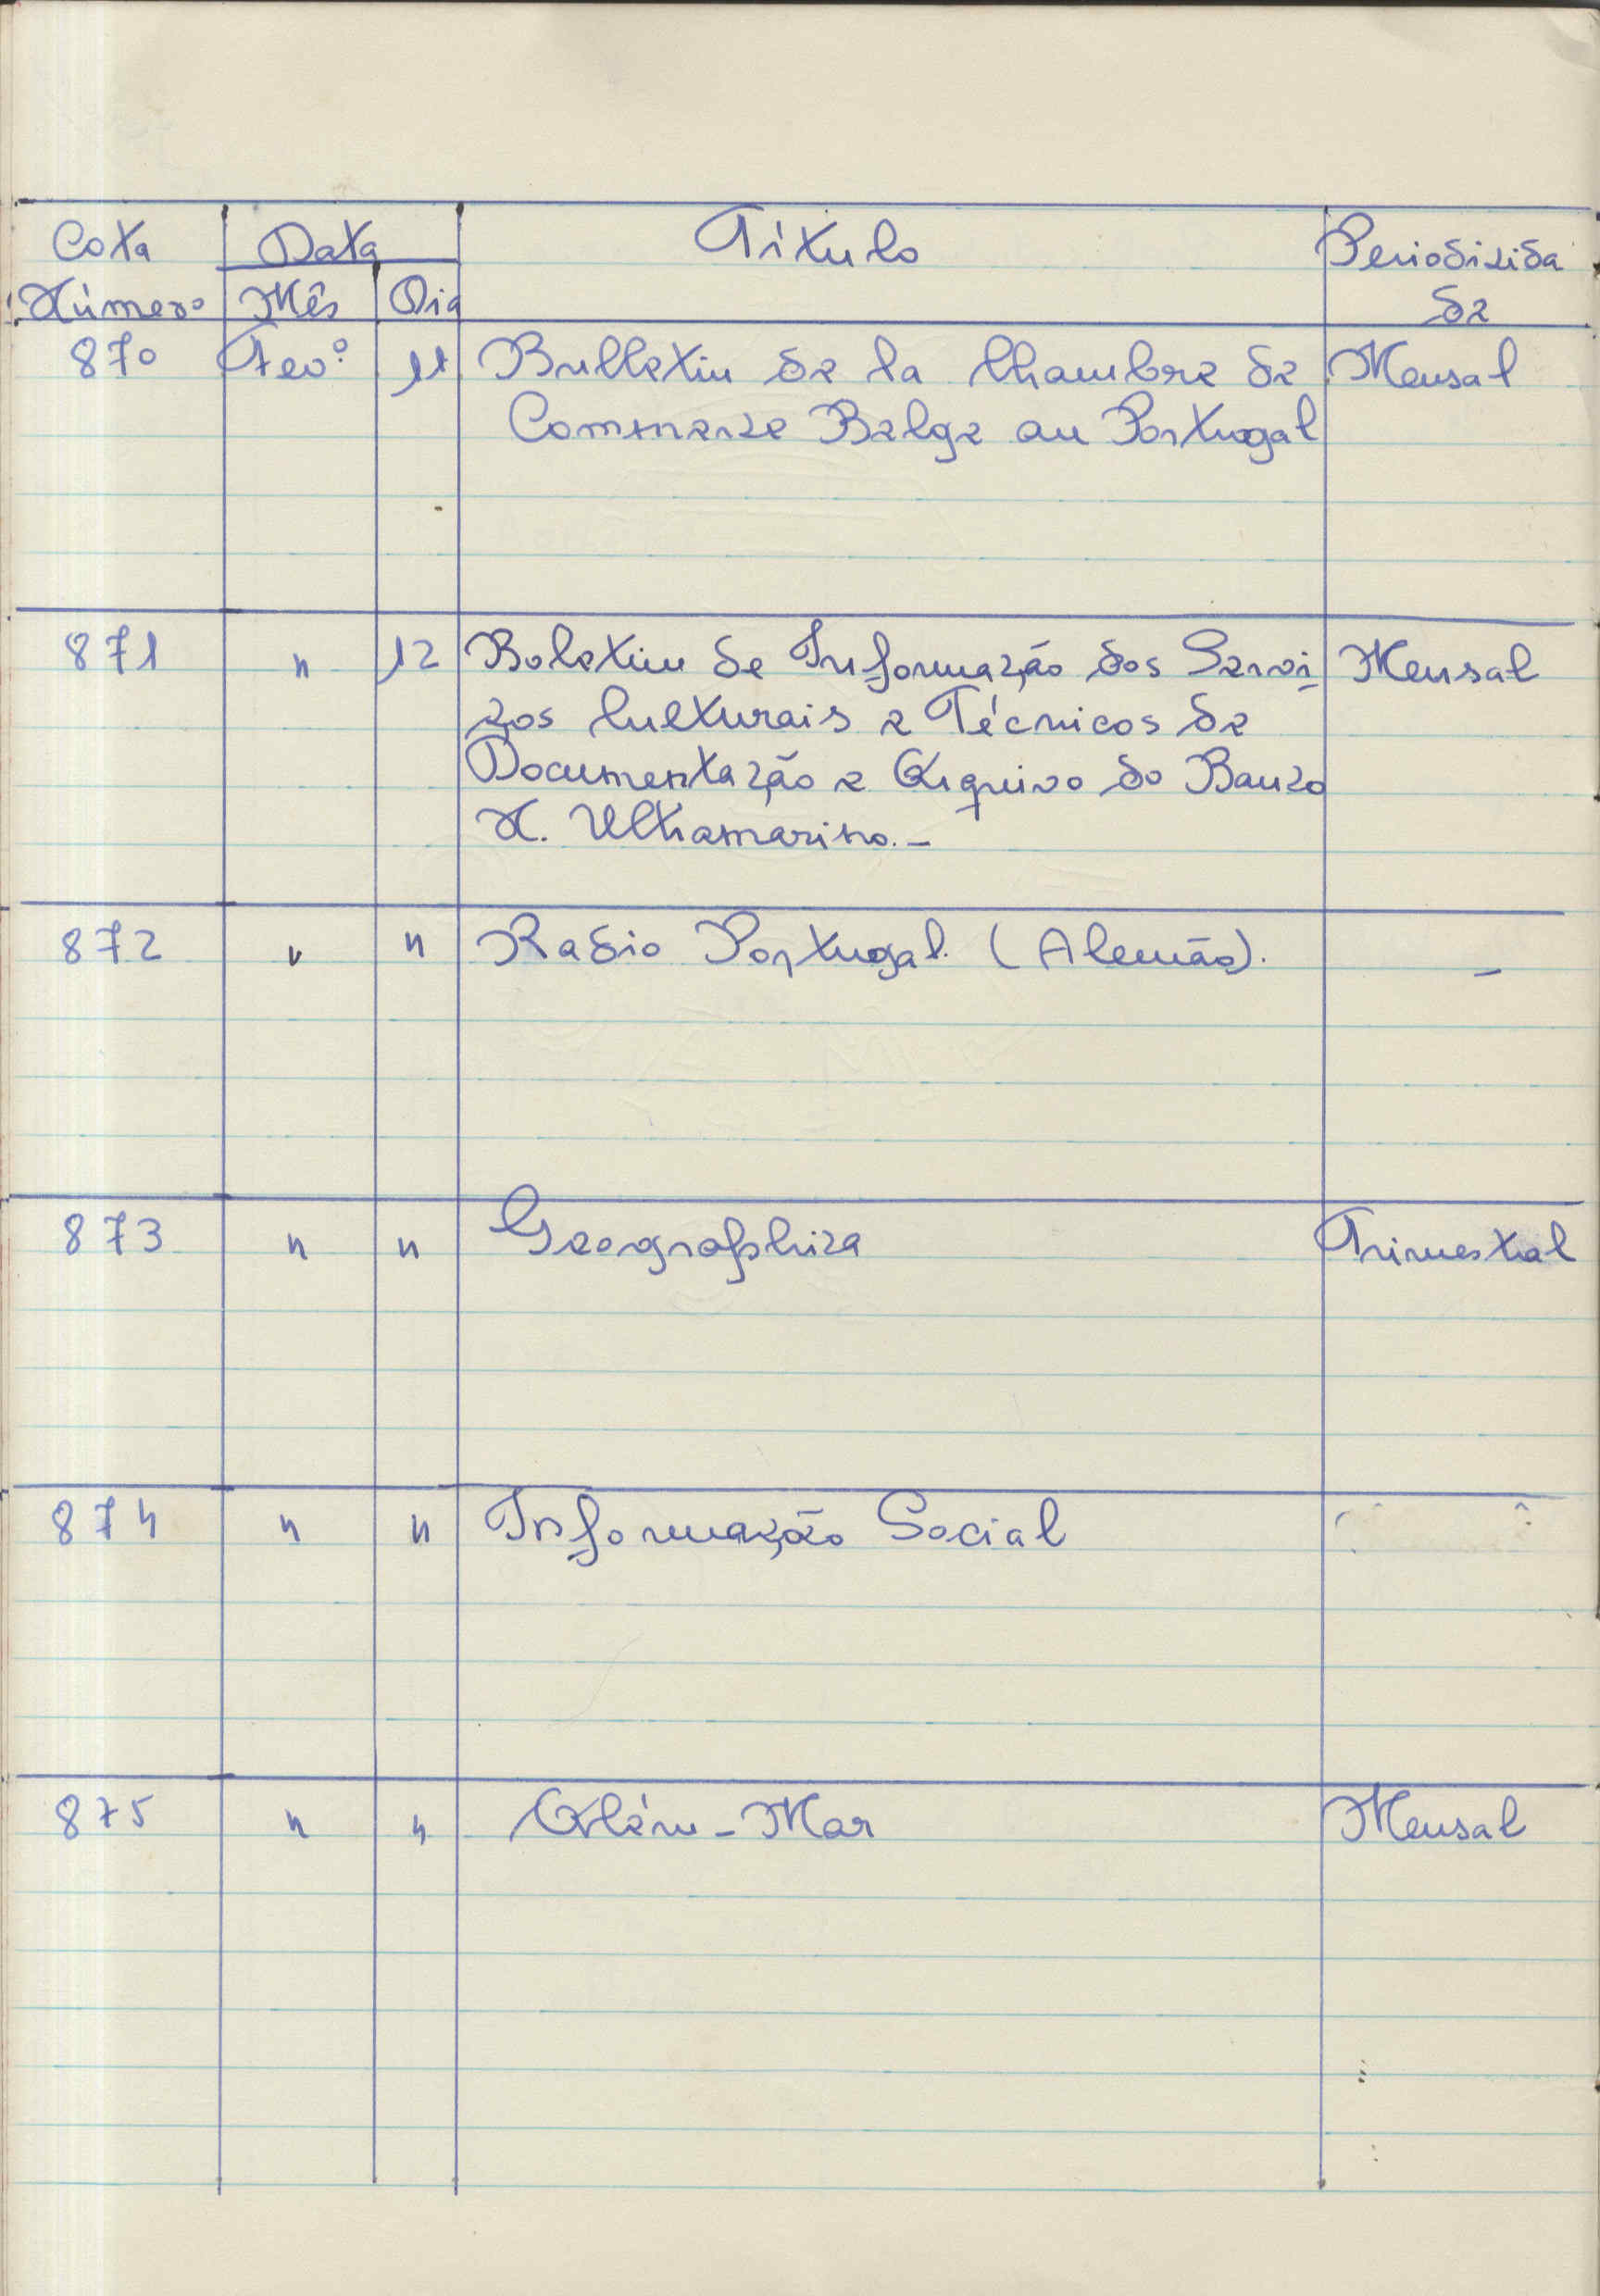 Cota Data Título Periodicida
Número Mês Dia de
870 Fevº 11 Bulletin de la Chambre de Mensal
Commerce Belge au Portugal
871 " 12 Boletim de Informação dos Servi Mensal
ços Culturais e Técnicos de
Documentação e Arquivo do Banco
N. Ultramarino. -
872 " " Radio Portugal. (Alemão). -
873 " " Geographica Trimestral
874 " " Informação Social
875 " " Além-Mar Mensal